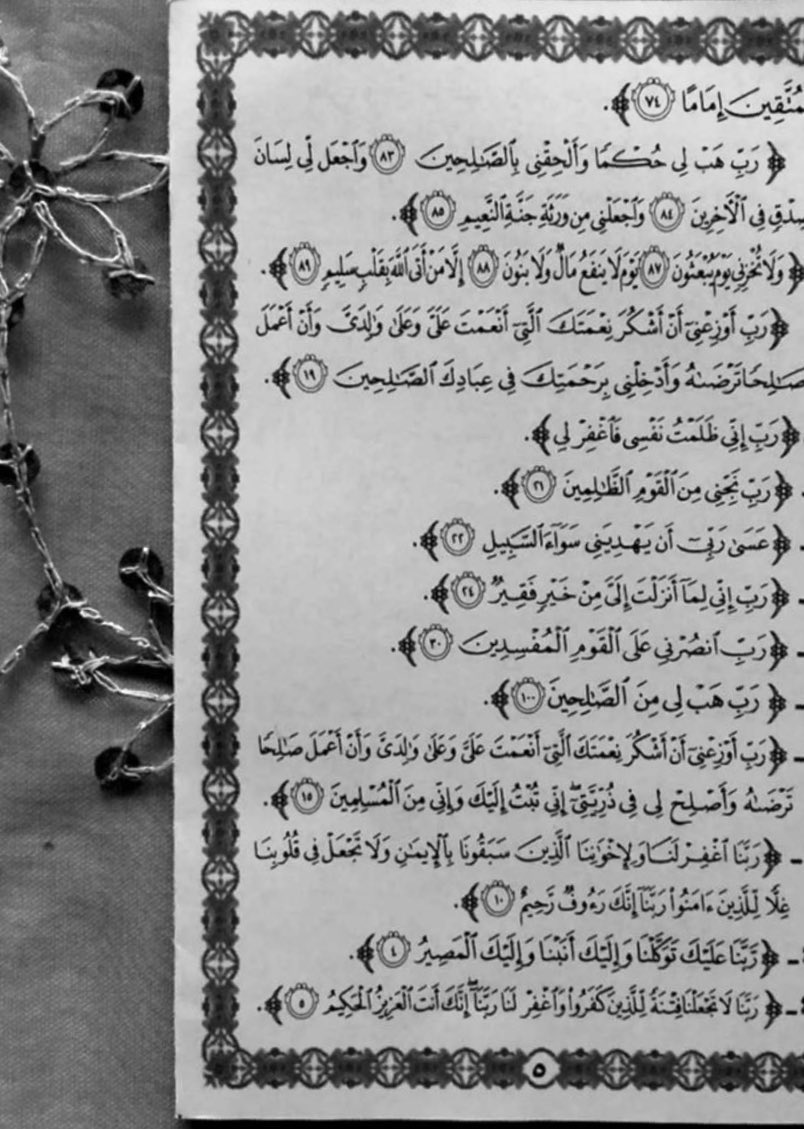 لمُتَّقِينَ إِمَامًا ﴿٧٤﴾.
﴿ رَبِّ هَبْ لِى حُكْمًا وَأَلْحِقْنِى بِٱلصَّـٰلِحِينَ ﴿٨٣﴾ وَٱجْعَل لِّى لِسَانَ
صِدْقٍ فِى ٱلْأَخِرِينَ ﴿٨٤﴾ وَٱجْعَلْنِى مِن وَرَثَةِ جَنَّةِ ٱلنَّعِيمِ ﴿٨٥﴾.
﴿ وَلَا تُخْزِنِى يَوْمَ يُبْعَثُونَ ﴿٨٧﴾ يَوْمَ لَا يَنفَعُ مَالٌ وَلَا بَنُونَ ﴿٨٨﴾ إِلَّا مَنْ أَتَى ٱللَّهَ بِقَلْبٍ سَلِيمٍ ﴿٨٩﴾.
﴿ رَبِّ أَوْزِعْنِىٓ أَنْ أَشْكُرَ نِعْمَتَكَ ٱلَّتِىٓ أَنْعَمْتَ عَلَىَّ وَعَلَىٰ وَٰلِدَىَّ وَأَنْ أَعْمَلَ
صَـٰلِحًا تَرْضَىٰهُ وَأَدْخِلْنِى بِرَحْمَتِكَ فِى عِبَادِكَ ٱلصَّـٰلِحِينَ ﴿١٩﴾.
﴿ رَبِّ إِنِّى ظَلَمْتُ نَفْسِى فَٱغْفِرْ لِى ﴾.
﴿ رَبِّ نَجِّنِى مِنَ ٱلْقَوْمِ ٱلظَّـٰلِمِينَ ﴿٢١﴾.
- ﴿ عَسَىٰ رَبِّىٓ أَن يَهْدِيَنِى سَوَآءَ ٱلسَّبِيلِ ﴿٢٢﴾.
- ﴿ رَبِّ إِنِّى لِمَآ أَنزَلْتَ إِلَىَّ مِنْ خَيْرٍ فَقِيرٌ ﴿٢٤﴾.
- ﴿ رَبِّ ٱنصُرْنِى عَلَى ٱلْقَوْمِ ٱلْمُفْسِدِينَ ﴿٣٠﴾.
- ﴿ رَبِّ هَبْ لِى مِنَ ٱلصَّـٰلِحِينَ ﴿١٠٠﴾.
- ﴿ رَبِّ أَوْزِعْنِىٓ أَنْ أَشْكُرَ نِعْمَتَكَ ٱلَّتِىٓ أَنْعَمْتَ عَلَىَّ وَعَلَىٰ وَٰلِدَىَّ وَأَنْ أَعْمَلَ صَـٰلِحًا
تَرْضَىٰهُ وَأَصْلِحْ لِى فِى ذُرِّيَّتِىٓ إِنِّى تُبْتُ إِلَيْكَ وَإِنِّى مِنَ ٱلْمُسْلِمِينَ ﴿١٥﴾.
- ﴿ رَبَّنَا ٱغْفِرْ لَنَا وَلِإِخْوَٰنِنَا ٱلَّذِينَ سَبَقُونَا بِٱلْإِيمَـٰنِ وَلَا تَجْعَلْ فِى قُلُوبِنَا
غِلًّا لِّلَّذِينَ ءَامَنُوا۟ رَبَّنَآ إِنَّكَ رَءُوفٌ رَّحِيمٌ ﴿١٠﴾.
- ﴿ رَّبَّنَا عَلَيْكَ تَوَكَّلْنَا وَإِلَيْكَ أَنَبْنَا وَإِلَيْكَ ٱلْمَصِيرُ ﴿٤﴾.
- ﴿ رَبَّنَا لَا تَجْعَلْنَا فِتْنَةً لِّلَّذِينَ كَفَرُوا۟ وَٱغْفِرْ لَنَا رَبَّنَآ إِنَّكَ أَنتَ ٱلْعَزِيزُ ٱلْحَكِيمُ ﴿٥﴾.
٥